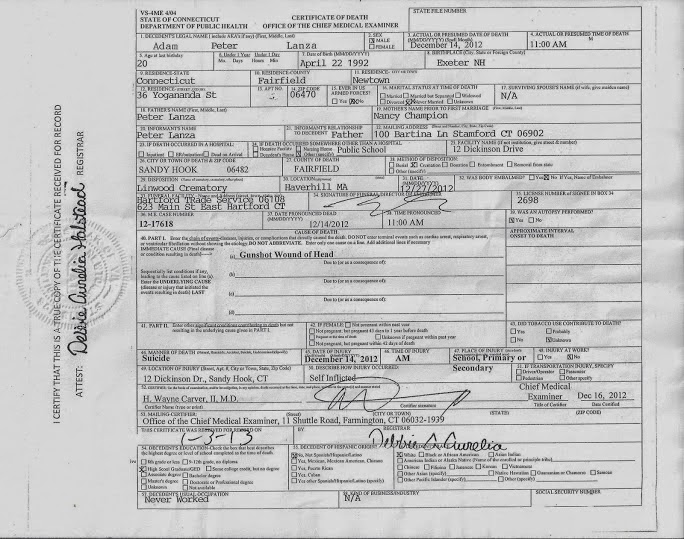 VS-4ME 4/04
STATE OF CONNECTICUT
DEPARTMENT OF PUBLIC HEALTH
CERTIFICATE OF DEATH
OFFICE OF THE CHIEF MEDICAL EXAMINER
STATE FILE NUMBER
1. DECEDENT'S LEGAL NAME (include AKA's if any) (First, Middle, Last)
Adam Peter Lanza
2. SEX
MALE
FEMALE
3. ACTUAL OR PRESUMED DATE OF DEATH
(MM/DD/YYYY) (Spell Month)
December 14, 2012
4. ACTUAL OR PRESUMED TIME OF DEATH
11:00 AM
M
5. Age at last birthday
20
6. Under 1 Year Under 1 Day
Mo. Days Hours Min
7. Date of Birth (MM/DD/YYYY)
April 22 1992
8. BIRTHPLACE (City, State or Foreign Country)
Exeter NH
9. RESIDENCE-STATE
Connecticut
10. RESIDENCE-COUNTY
Fairfield
11. RESIDENCE- CITY OR TOWN
Newtown
12. RESIDENCE-STREET
36 Yogananda St
13. APT NO.
14. ZIP CODE
06470
15. EVER IN US
ARMED FORCES?
Yes No
16. MARITAL STATUS AT TIME OF DEATH
Married Married but Separated Widowed
Divorced Never Married Unknown
17. SURVIVING SPOUSE'S NAME (if wife, give maiden name)
N/A
18. FATHER'S NAME (First, Middle, Last)
Peter Lanza
19. MOTHER'S NAME PRIOR TO FIRST MARRIAGE (First, Middle, Last)
Nancy Champion
20. INFORMANT'S NAME
Peter Lanza
21. INFORMANT'S RELATIONSHIP
TO DECEDENT Father
22. MAILING ADDRESS
100 Bartina Ln Stamford CT 06902
23. IF DEATH OCCURRED IN A HOSPITAL:
Inpatient Dead on Arrival
24. IF DEATH OCCURRED SOMEWHERE OTHER THAN A HOSPITAL:
Hospice Facility Nursing Home Public School
Decedent's Home Other (specify)
25. FACILITY NAME (If not institution, give street & number)
12 Dickinson Drive
26. CITY OR TOWN OF DEATH & ZIP CODE
SANDY HOOK 06482
27. COUNTY OF DEATH
FAIRFIELD
28. METHOD OF DISPOSITION:
Burial Cremation Donation Entombment Removal from state
Other (specify)
29. DISPOSITION
Linwood Crematory
30. LOCATION
Haverhill MA
31. DATE
12/27/2012
32. WAS BODY EMBALMED?
Yes No If Yes, Name of Embalmer
Hartford Trade Service 06108
623 Main St East Hartford CT
34. SIGNATURE OF FUNERAL DIRECTOR OR EMBALMER
35. LICENSE NUMBER OF SIGNEE IN BOX 34
2698
36. M.E. CASE NUMBER
12-17618
37. DATE PRONOUNCED DEAD
(MM/DD/YYYY)
12/14/2012
38. TIME PRONOUNCED
11:00 AM
39. WAS AN AUTOPSY PERFORMED?
Yes No
CAUSE OF DEATH
40. PART I. Enter the chain of events--diseases, injuries, or complications that directly caused the death. DO NOT enter terminal events such as cardiac arrest, respiratory arrest,
or ventricular fibrillation without showing the etiology. DO NOT ABBREVIATE. Enter only one cause on a line. Add additional lines if necessary
APPROXIMATE INTERVAL
ONSET TO DEATH
IMMEDIATE CAUSE (Final disease
or condition resulting in death)
(a) Gunshot Wound of Head
Due to (or as a consequence of):
Sequentially list conditions if any,
leading to the cause listed on line (a).
Enter the UNDERLYING CAUSE
(disease or injury that initiated the
events resulting in death) LAST
(b)
Due to (or as a consequence of):
(c)
Due to (or as a consequence of):
(d)
41. PART II. Enter other significant conditions contributing to death but not
resulting in the underlying cause given in PART I.
42. IF FEMALE: Not pregnant within past year
Not pregnant, but pregnant 43 days to 1 year before death
Pregnant at time of death Unknown if pregnant within past year
Not pregnant, but pregnant within 42 days of death
43. DID TOBACCO USE CONTRIBUTE TO DEATH?
Yes Probably
No Unknown
44. MANNER OF DEATH
Suicide
45. DATE OF INJURY
December 14, 2012
46. TIME OF INJURY
AM
47. PLACE OF INJURY
School, Primary or
Secondary
48. INJURY AT WORK?
Yes No
49. LOCATION OF INJURY (Street, Apt. #, City or Town, State, Zip Code)
12 Dickinson Dr., Sandy Hook, CT
50. DESCRIBE HOW INJURY OCCURRED:
Self Inflicted
51. IF TRANSPORTATION INJURY, SPECIFY
Driver/Operator Passenger
Pedestrian Other specify
H. Wayne Carver, II, M.D.
Certifier Name (print or type)
Certifier SIGNATURE
Chief Medical
Examiner Dec 16, 2012
Title of Certifier Date Certified
53. MAILING CERTIFIER:
(Street) (CITY OR TOWN) (STATE) (ZIP CODE)
Office of the Chief Medical Examiner, 11 Shuttle Road, Farmington, CT 06032-1939
THIS CERTIFICATE WAS RECEIVED FOR RECORD ON
1-3-13
BY
Debbie A. Aurelia
REGISTRAR
54. DECEDENT'S EDUCATION-Check the box that best describes
the highest degree or level of school completed at the time of death.
8th grade or less 9-12th grade, no diploma
High School Graduate/GED Some college credit, but no degree
Associate degree Bachelor degree
Master's degree Doctorate or Professional degree
Unknown Not available
55. DECEDENT OF HISPANIC ORIGIN
No, Not Spanish/Hispanic/Latino
Yes, Mexican, Mexican American, Chicano
Yes, Puerto Rican
Yes, Cuban
Yes other Spanish/Hispanic/Latino (specify)
White Black or African American Asian Indian
American Indian or Alaska Native (Name of the enrolled or principle tribe)
Chinese Filipino Japanese Korean Vietnamese
Other Asian (specify) Native Hawaiian Guamanian or Chamorro Samoan
Other Pacific Islander (specify) Other (specify)
57. DECEDENT'S USUAL OCCUPATION
Never Worked
58. KIND OF BUSINESS/INDUSTRY
N/A
SOCIAL SECURITY NUMBER
I CERTIFY THAT THIS IS A TRUE COPY OF THE CERTIFICATE RECEIVED FOR RECORD
ATTEST: Debbie Aurelia Halstead REGISTRAR